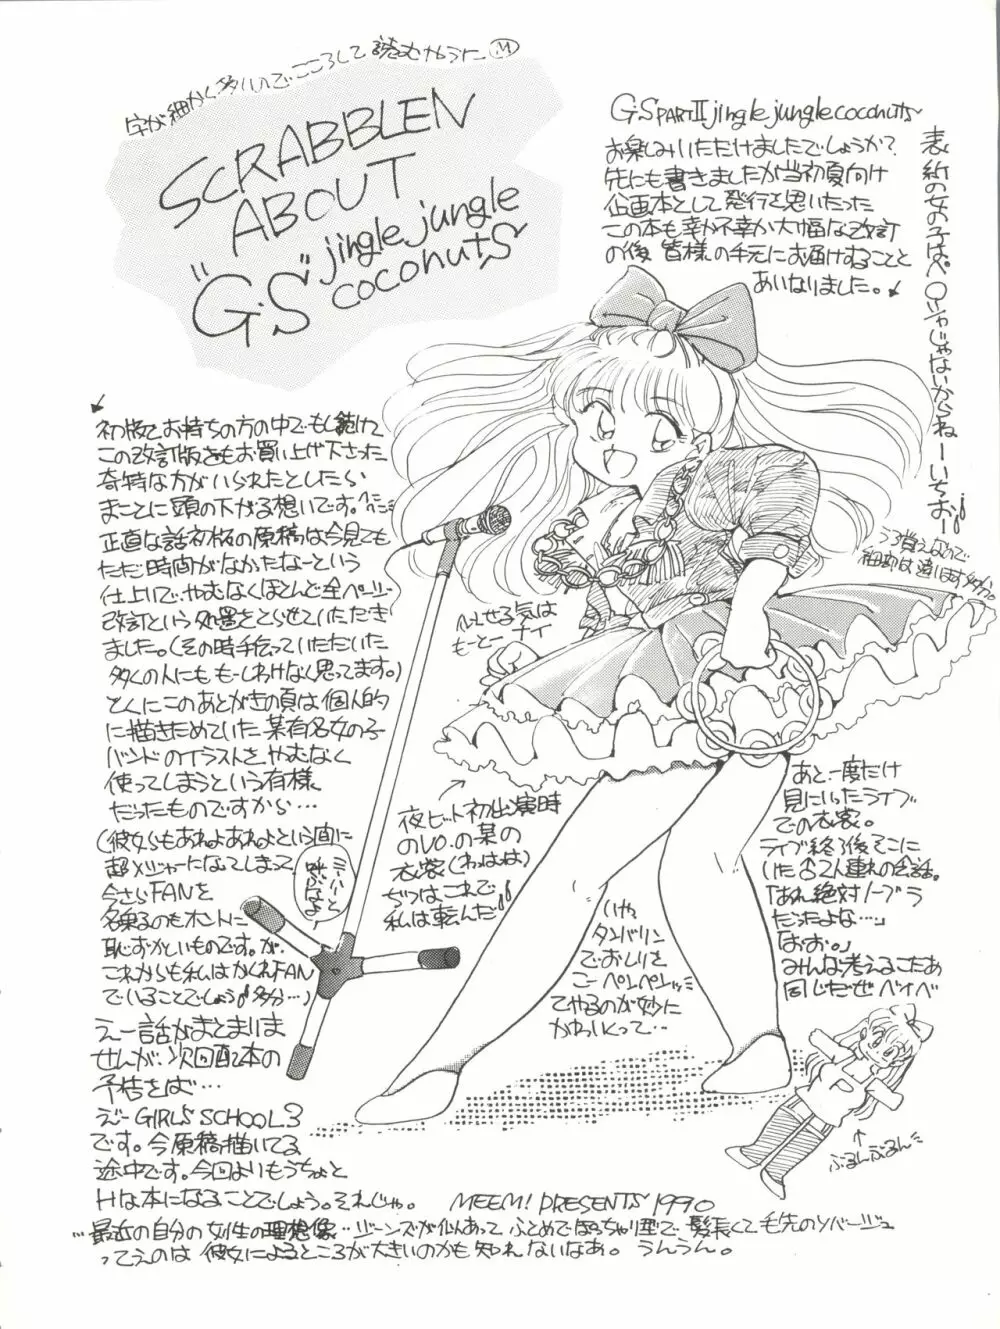 字が細かく多いので、こころして読むやうに Ⓜ
SCRABBLEN
ABOUT
"G.S" jingle jungle
coconuts
G.S PARTⅡ jingle jungle coconuts
お楽しみいただけましたでしょうか?
先にも書きましたが当初夏向け
企画本として発行を思いたった
この本も幸か不幸か大幅な改訂
の後 皆様の手元にお届けすることと
あいなりました。
表紙の女の子はペ〇ジャじゃないからねーいちおー
初版をお持ちの方の中でもし
この改訂版をもお買い上げ下さった
奇特な方がいられたとしたら
まことに頭の下がる想いです。
正直な話初版の原稿は今見ても
ただ時間がなかったなーという
仕上りで、やむなくほとんど全ページ
改訂という処置をとらせていただき
ました。(その時手伝っていただいた
多くの人にももーしわけなく思ってます。)
とくにこのあとがきの頁は個人的
に描きためていた某有名女の子
バンドのイラストを、やむなく
使ってしまうという有様
だったものですから…
(彼女らもあれよあれよという間に
超メジャーになってしまって
今さらFANを
名乗るのもホントに
恥ずかしいものです。が、
これからも私はかくれFAN
でいることでしょう 多分…)
えー話がまとまりま
せんが、次回配本の
予告をば…
GIRL'S SCHOOL 3
です。今原稿描いてる
途中です。今回よりもうちょと
Hな本になることでしょう。それじゃ。
MEEM! PRESENTS 1990
ミーハーと
呼ぶなよ
似せる気は
もーとーナイ
うろ覚えなので
細部は違います多分
夜ヒット初出演時
のVO.の某の
衣裳(わはは)
ぢつはこれで
私は転んだ
(いや
タンバリン
でおしりを
こーペしペしッ
てやるのが妙に
かわいくって…
あと一度だけ
見にいったライブ
での衣裳。
ライブ終了後そこに
いた♂2人連れの会話。
「あれ絶対ノーブラ
だったよな…」
「おお。」
みんな考えるこたあ
同じだぜベイベ
ぶるんぶるん
…最近の自分の女性の理想像…ジーンズが似あって ふとめでぽっちゃり型で、髪長くて毛先のソバージュ
ってえのは 彼女によるところが大きいのかも知れないなあ。うんうん。